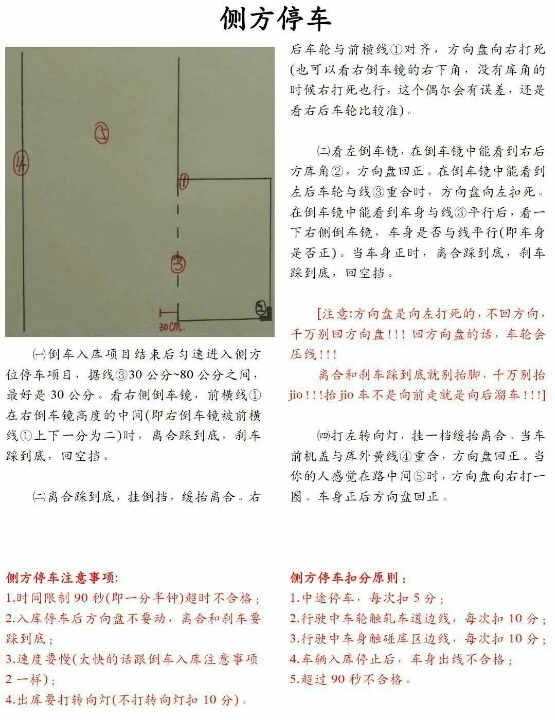 侧方停车
④
⑤
①
③
②
30CM.
㈠倒车入库项目结束后匀速进入侧方
位停车项目，据线③30公分~80公分之间，
最好是30公分。看右侧倒车镜，前横线①
在右倒车镜高度的中间(即右倒车镜被前横
线①上下一分为二)时，离合踩到底，刹车
踩到底，回空挡。
㈡离合踩到底，挂倒挡，缓抬离合。右
后车轮与前横线①对齐，方向盘向右打死
(也可以看右倒车镜的右下角，没有库角的
时候右打死也行，这个偶尔会有误差，还是
看右后车轮比较准)。
㈢看左倒车镜，在倒车镜中能看到右后
方库角②，方向盘回正。在倒车镜中能看到
左后车轮与线③重合时，方向盘向左扣死。
在倒车镜中能看到车身与线③平行后，看一
下右侧倒车镜，车身是否与线平行(即车身
是否正)。当车身正时，离合踩到底，刹车
踩到底，回空挡。
[注意:方向盘是向左打死的，不回方向，
千万别回方向盘!!!回方向盘的话，车轮会
压线!!!
离合和刹车踩到底就别抬脚，千万别抬
jio!!!抬jio车不是向前走就是向后溜车!!!]
㈣打左转向灯，挂一档缓抬离合。当车
前机盖与库外黄线④重合，方向盘回正。当
你的人感觉在路中间⑤时，方向盘向右打一
圈。车身正后方向盘回正。
侧方停车注意事项:
1.时间限制90秒(即一分半钟)超时不合格；
2.入库停车后方向盘不要动，离合和刹车要
踩到底；
3.速度要慢(太快的话跟倒车入库注意事项
2一样)；
4.出库要打转向灯(不打转向灯扣10分)。
侧方停车扣分原则：
1.中途停车，每次扣5分；
2.行驶中车轮触轧车道边线，每次扣10分；
3.行驶中车身触碰库区边线，每次扣10分；
4.车辆入库停止后，车身出线不合格；
5.超过90秒不合格。